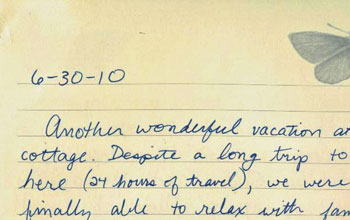 6-30-10
Another wonderful vacation at
cottage. Despite a long trip to
here (24 hours of travel), we were
finally able to relax with fam